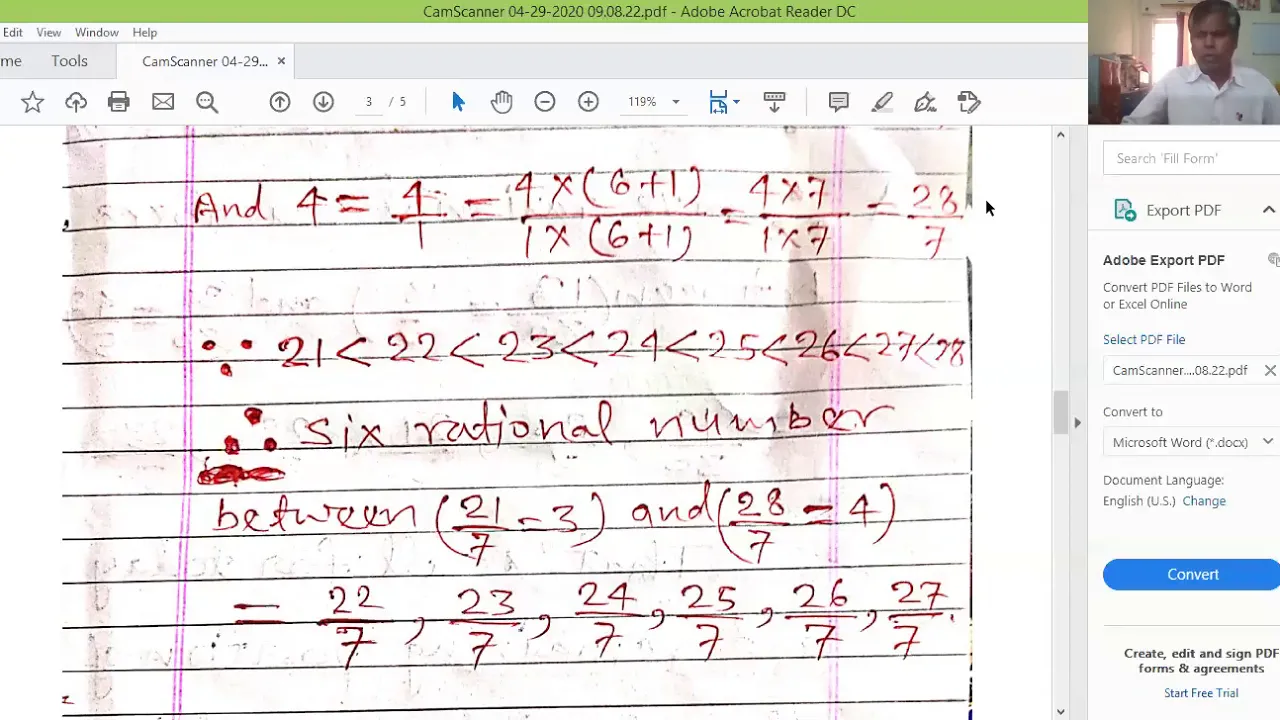 CamScanner 04-29-2020 09.08.22.pdf - Adobe Acrobat Reader DC
Edit View Window Help
me Tools CamScanner 04-29... ×
3 / 5 119%
And 4 = 4/1 = 4×(6+1)/1×(6+1) = 4×7/1×7 = 28/7
∵ 21<22<23<24<25<26<27<28
∴ six rational number
between (21/7 = 3) and (28/7 = 4)
= 22/7, 23/7, 24/7, 25/7, 26/7, 27/7.
Search 'Fill Form'
Export PDF
Adobe Export PDF
Convert PDF Files to Word
or Excel Online
Select PDF File
CamScanner....08.22.pdf ×
Convert to
Microsoft Word (*.docx)
Document Language:
English (U.S.) Change
Convert
Create, edit and sign PDF
forms & agreements
Start Free Trial